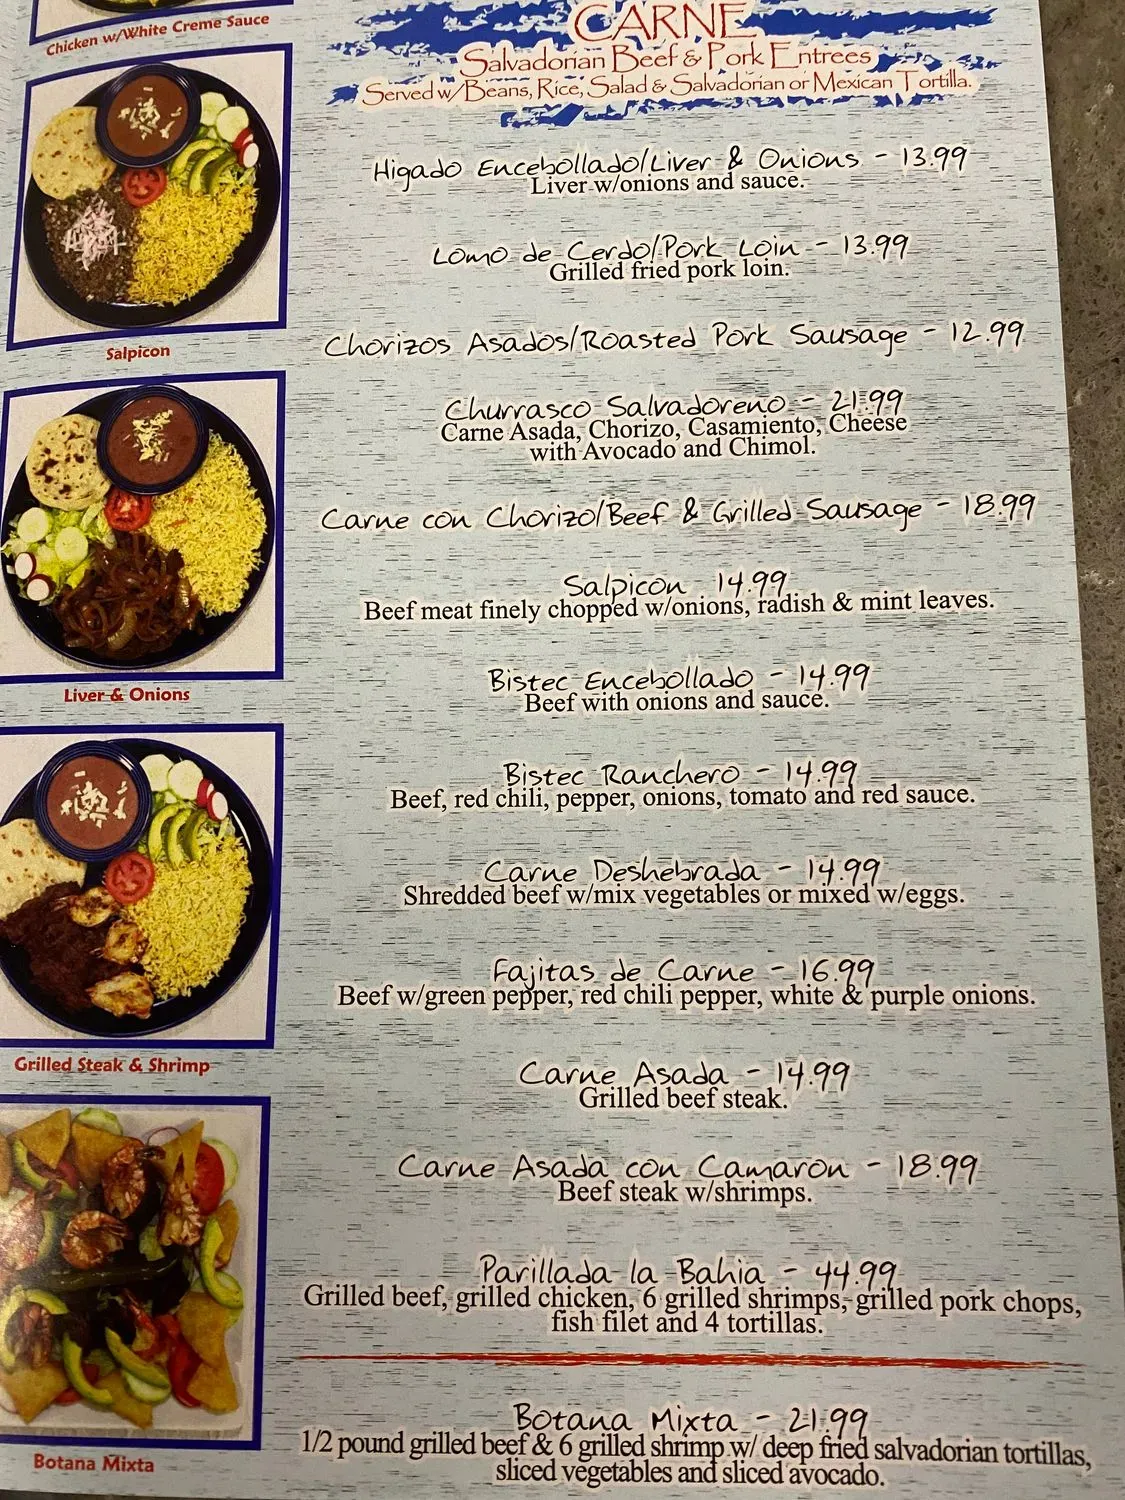 Chicken w/White Creme Sauce
CARNE
Salvadorian Beef & Pork Entrees
Served w/Beans, Rice, Salad & Salvadorian or Mexican Tortilla.
Higado Encebollado/Liver & Onions - 13.99
Liver w/onions and sauce.
Lomo de Cerdo/Pork Loin - 13.99
Grilled fried pork loin.
Salpicon
Chorizos Asados/Roasted Pork Sausage - 12.99
Churrasco Salvadoreno - 21.99
Carne Asada, Chorizo, Casamiento, Cheese
with Avocado and Chimol.
Carne con Chorizo/Beef & Grilled Sausage - 18.99
Salpicon 14.99
Beef meat finely chopped w/onions, radish & mint leaves.
Liver & Onions
Bistec Encebollado - 14.99
Beef with onions and sauce.
Bistec Ranchero - 14.99
Beef, red chili, pepper, onions, tomato and red sauce.
Carne Deshebrada - 14.99
Shredded beef w/mix vegetables or mixed w/eggs.
Fajitas de Carne - 16.99
Beef w/green pepper, red chili pepper, white & purple onions.
Grilled Steak & Shrimp
Carne Asada - 14.99
Grilled beef steak.
Carne Asada con Camaron - 18.99
Beef steak w/shrimps.
Parillada la Bahia - 44.99
Grilled beef, grilled chicken, 6 grilled shrimps, grilled pork chops,
fish filet and 4 tortillas.
Botana Mixta
Botana Mixta - 21.99
1/2 pound grilled beef & 6 grilled shrimp w/ deep fried salvadorian tortillas,
sliced vegetables and sliced avocado.